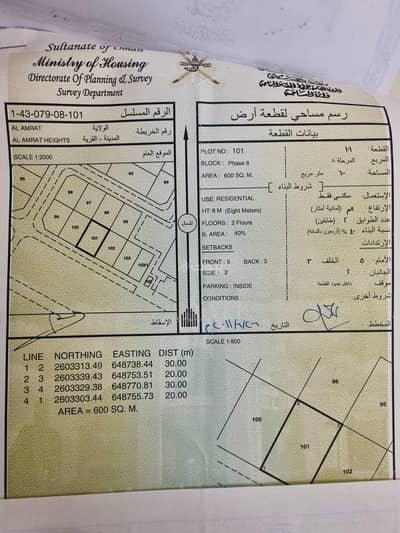 Sultanate of Oman
Ministry of Housing
Directorate Of Planning & Survey
Survey Department
1-43-079-08-101
الرقم المسلسل
AL AMRAT
الولاية
رقم الخريطة
AL AMRAT HEIGHTS
المدينة - القرية
SCALE 1:2000
الموقع العام
100
101
102
الشمال
الإسقاط
رسم مساحي لقطعة أرض
بيانات القطعة
PLOT NO : 101
١٠١ القطعة
BLOCK : Phase 8
المرحلة ٨ المربع
AREA : 600 SQ. M.
٦٠٠ متر مربع المساحة
شروط البناء
USE: RESIDENTIAL
الإستعمال سكني فقط
HT:8 M (Eight Meters)
الإرتفاع ٨م (ثمانية أمتار)
FLOORS : 2 Floors
عدد الطوابق ٢ (طابقين)
B. AREA : 40%
نسبة البناء ٤٠٪ (أربعون بالمائة)
SETBACKS
الإرتدادات
FRONT : 5 BACK : 3
الأمام ٥ الخلف ٣
SIDE : 2
الجانبان ٢
PARKING : INSIDE
موقف داخل حدود القطعة
CONDITIONS :
شروط أخرى
المخطط
التاريخ
SCALE 1:600
LINE NORTHING EASTING DIST (m)
1 2 2603313.49 648738.44 30.00
2 3 2603339.43 648753.51 20.00
3 4 2603329.38 648770.81 30.00
4 1 2603303.44 648755.73 20.00
AREA = 600 SQ. M.
96
98
100
101
102